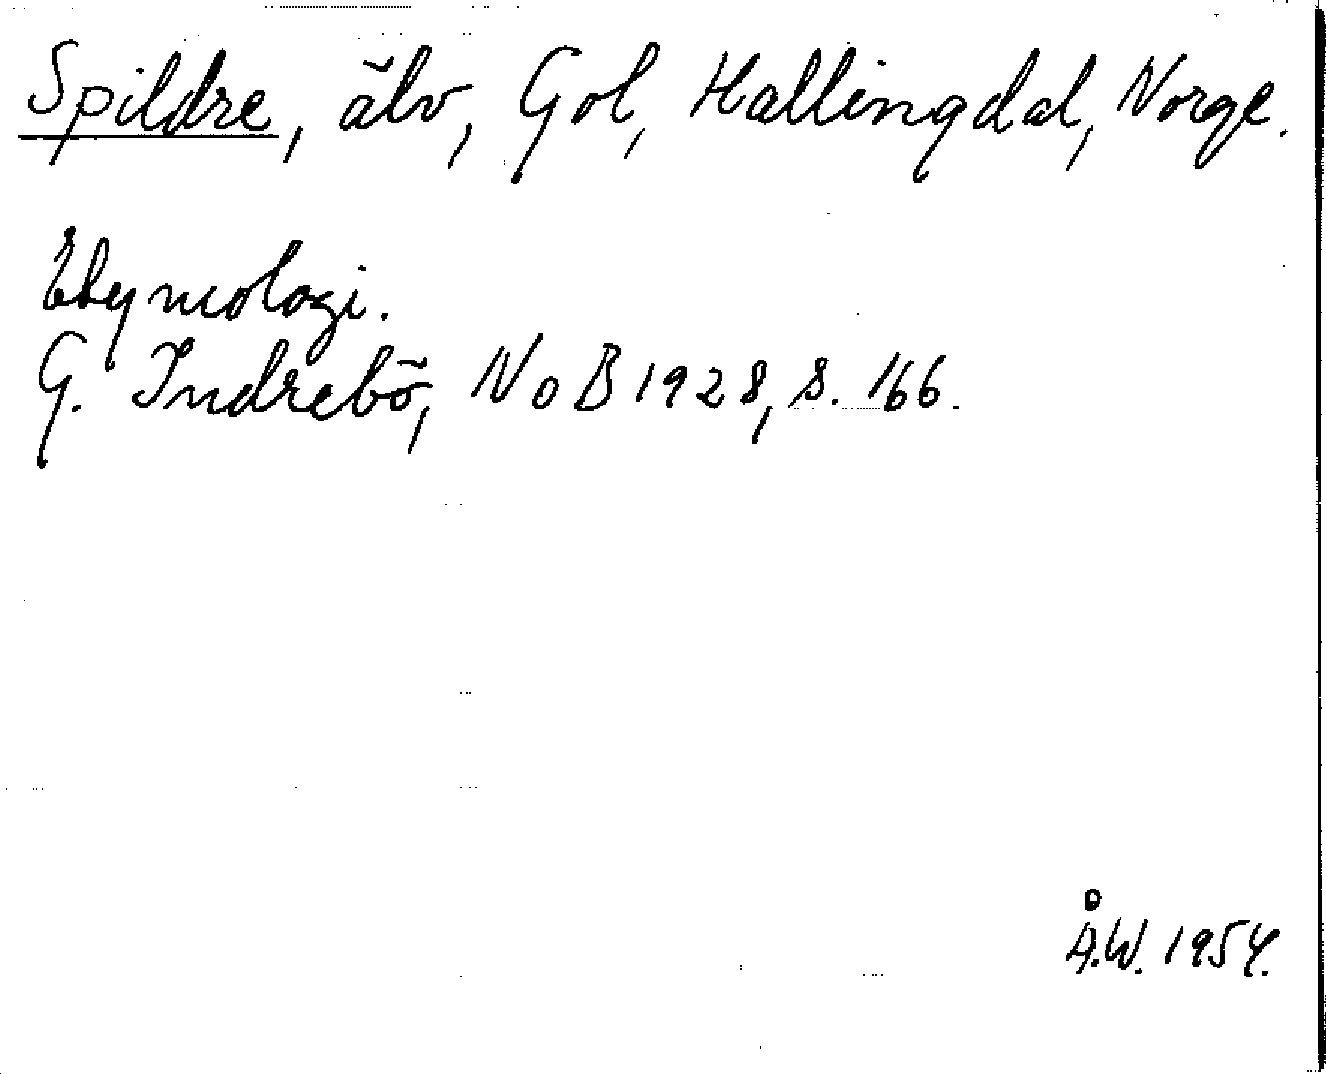 Spildre, älv, Gol, Hallingdal, Norge.
Etymologi.
G. Indrebö, NoB 1928, s. 166.
Å.W. 1954.